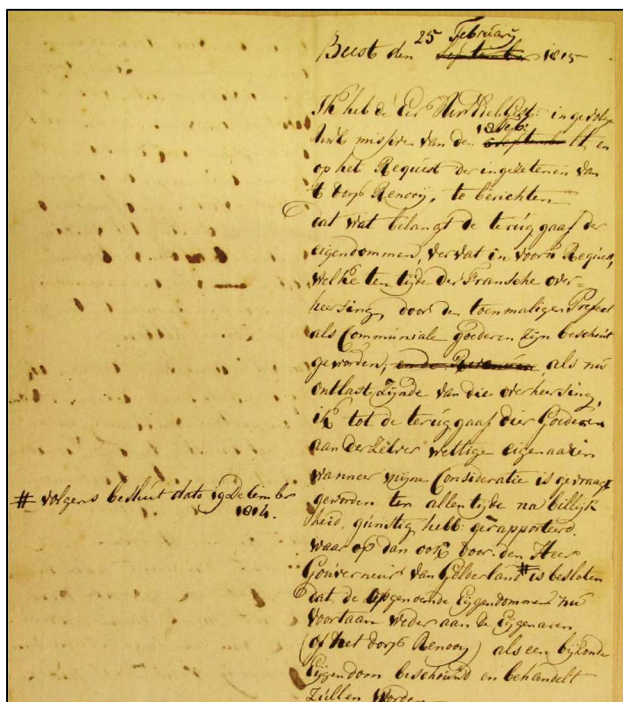 Beest den 25 February September 1815
Ik heb de Eer UwHlEdGest: in gevolge
missive van den 18 feb: September ll, en
op het Request der ingezetenen van
t dorp Renooij, te berichten
dat wat belangt de terúg gaaf der
eigendommen, vervat in voorn Request,
welke ten tyde der Fransche over-
heersing, door den toenmaligen Prefect
als Communiale goederen zyn beschout
geworden, en de als nu
ontlast zynde van die overheersing,
ik tot de terúg gaaf dier Goederen
aan derzelver wettige eigenaaren
wanneer myne Consideratie is gevraagt
geworden ten allen tyde na billyk
heid, gúnstig hebb: gerapporteerd.
waar op dan ook door den Heer
Gouverneúr van Gelderland # is besloten
dat de opgenoemde Eijgendommen nu
voortaan weder aan de Eijgenaren
(of het dorp Renooy) als een byzonder
Eijgendom beschouwd en behandelt
zúllen worden
# volgens besluit dato 19 December
1814.